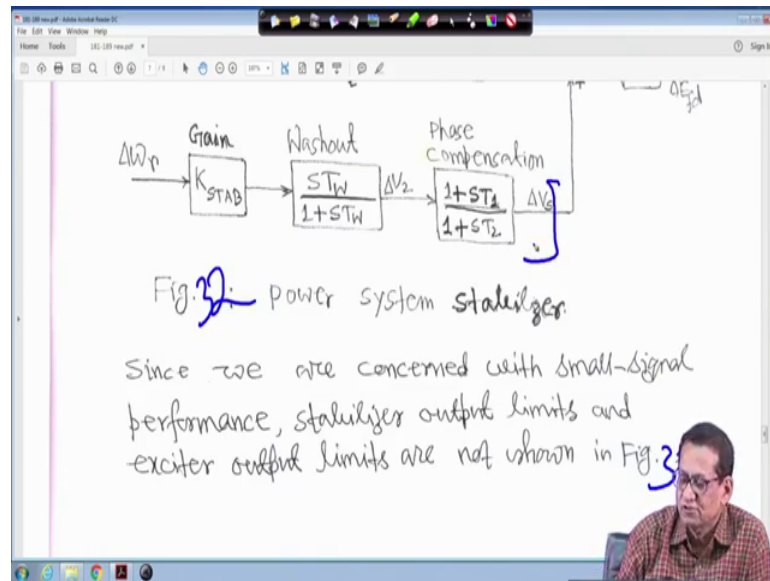 181-189 new.pdf - Adobe Acrobat Reader DC
File Edit View Window Help
Home Tools 181-189 new.pdf × Sign In
ΔE_fd
Gain Washout Phase Compensation
Δω_r K_STAB ST_W / 1+ST_W ΔV_2 1+ST_1 / 1+ST_2 ΔV_s
Fig. 32: power system stabilizer.
Since we are concerned with small-signal
performance, stabilizer output limits and
exciter output limits are not shown in Fig.